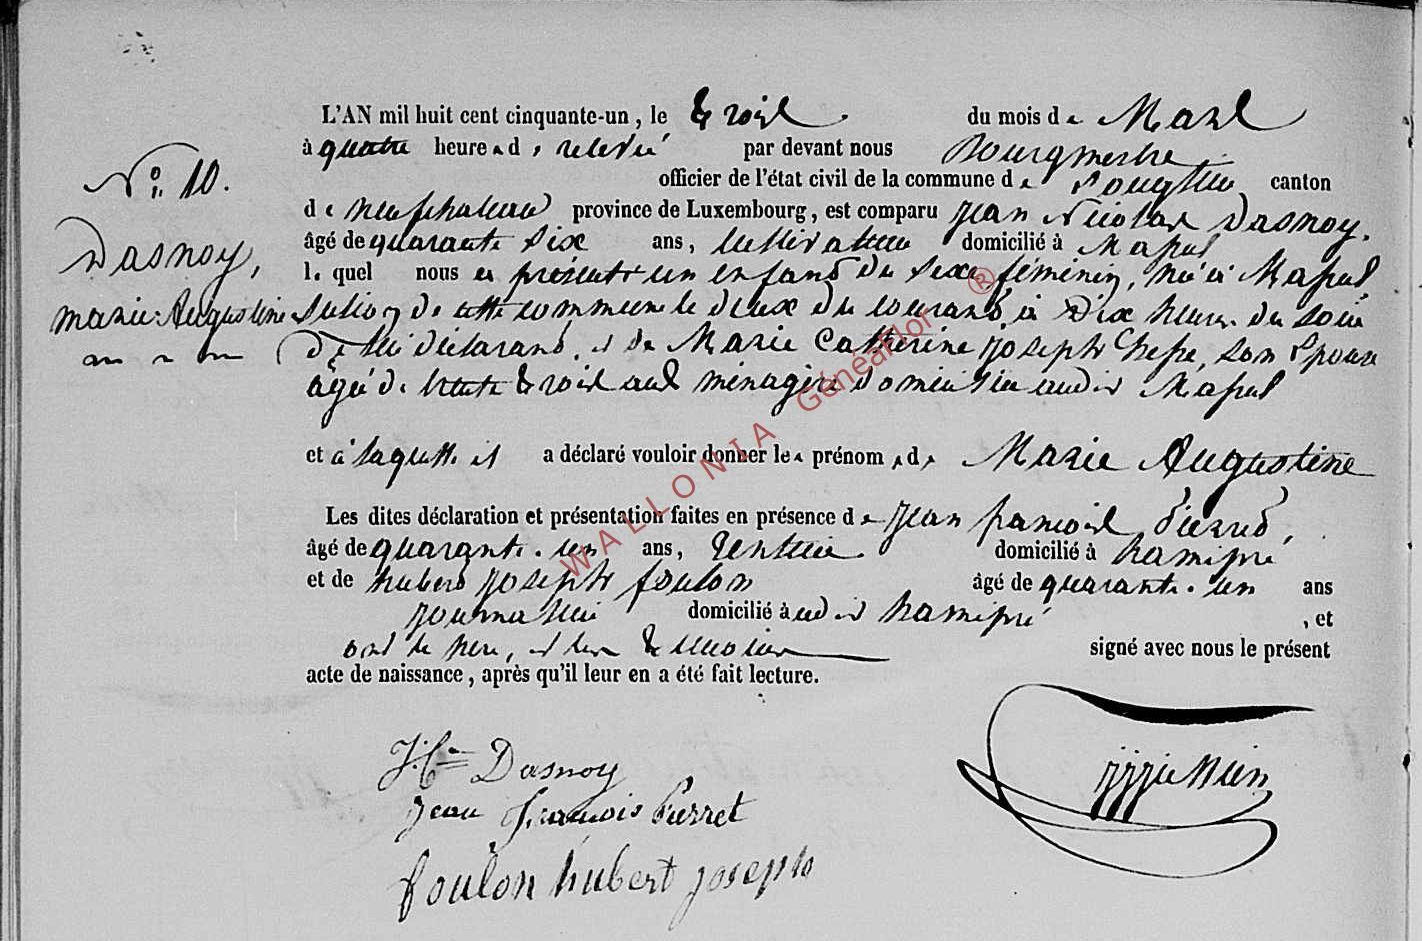 N.° 10.
Dasnoy,
Marie-Augustine
L'AN mil huit cent cinquante-un, le trois du mois de Mars
à quatre heures de relevé par devant nous Bourgmestre
officier de l'état civil de la commune de canton
de neufchateau province de Luxembourg, est comparu Jean Nicolas Dasnoy,
âgé de quarante six ans, domicilié à
le quel nous a présenté un enfant du sexe féminin, né à
de cette commune le deux du courant à Dix heures du soir
De lui déclarant, et de Marie Catherine Joseph son Epouse
âgé de trente trois ans ménagère domiciliée audit
et à laquelle il a déclaré vouloir donner les prénoms de Marie Augustine
Les dites déclaration et présentation faites en présence de Jean françois Pierret,
âgé de quarante-un ans, rentier domicilié à hamipré
et de hubert Joseph foulon âgé de quarante-un ans
journalier domicilié à audit hamipré, et
ont le père, et les témoins signé avec nous le présent
acte de naissance, après qu'il leur en a été fait lecture.
Dasnoy
Jean François Pierret
foulon hubert joseph
WALLONIA GénéaFlor ®